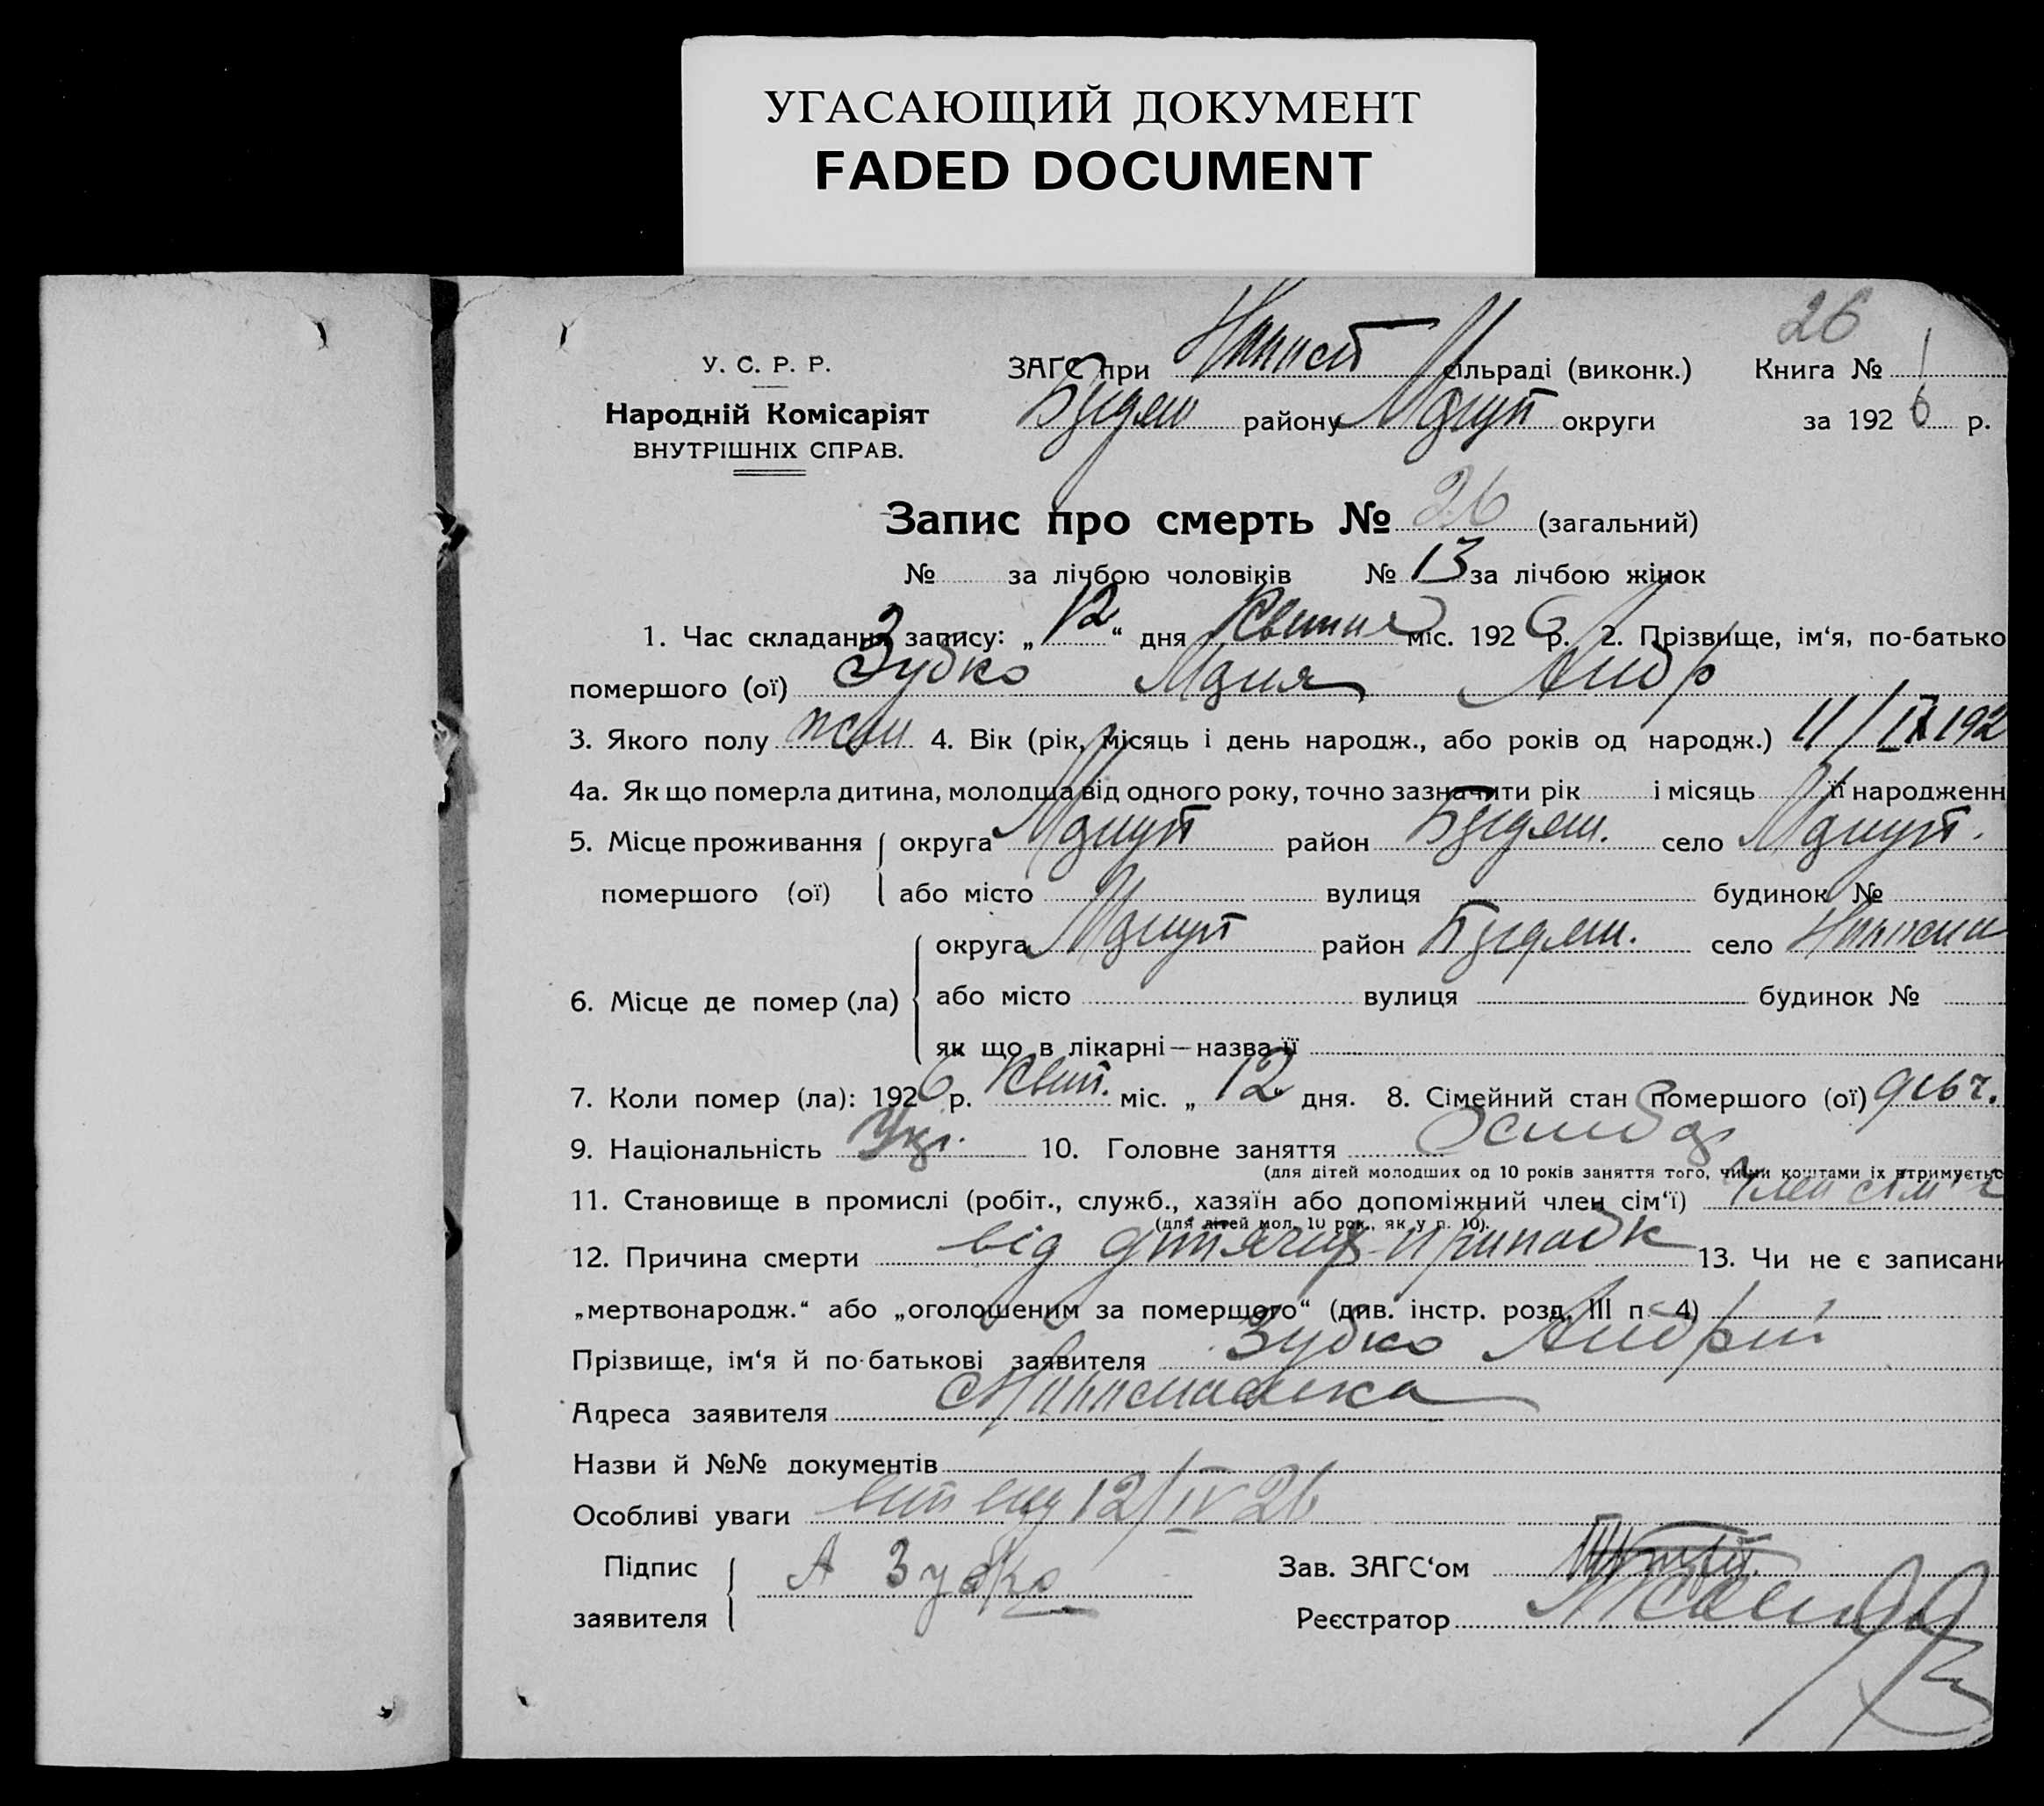 УГАСАЮЩИЙ ДОКУМЕНТ
FADED DOCUMENT
26
У. С. Р. Р.
Народній Комісаріят
ВНУТРІШНІХ СПРАВ.
ЗАГС при сільраді (виконк.) Книга № 1
району округи за 1926 р.
Запис про смерть № 26 (загальний)
№ за лічбою чоловіків № 13 за лічбою жінок
1. Час складання запису: „12“ дня Квитня міс. 1926 р. 2. Прізвище, ім‘я, по-батько
помершого (ої) Зубко Марія Андр
3. Якого полу жін 4. Вік (рік, місяць і день народж., або років од народж.) 11/IX 192
4а. Як що померла дитина, молодща від одного року, точно зазначити рік і місяць її народженн
5. Місце проживання округа район село
помершого (ої) або місто вулиця будинок №
округа район село
6. Місце де помер (ла) або місто вулиця будинок №
як що в лікарні—назва її
7. Коли помер (ла): 1926 р. Квит. міс. „12“ дня. 8. Сімейний стан помершого (ої) дівч.
9. Національність Укр. 10. Головне заняття
(для дітей молодших од 10 років заняття того, чиїми коштами їх втримуєтьс
11. Становище в промислі (робіт., служб., хазяїн або допоміжний член сім‘ї) Член сім‘ї
(для дітей мол. 10 рок., як у п. 10).
12. Причина смерти від дитячих припадк 13. Чи не є записани
„мертвонародж.“ або „оголошеним за помершого“ (див. інстр. розд. III п. 4)
Прізвище, ім‘я й по-батькові заявителя Зубко Андрій
Адреса заявителя
Назви й №№ документів
Особливі уваги 12/IV 26
Підпис А Зубко Зав. ЗАГС‘ом
заявителя Реєстратор